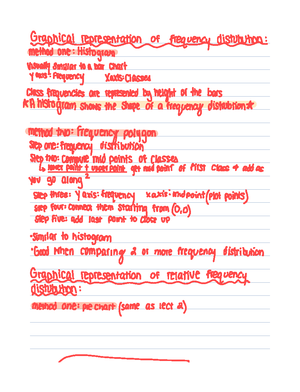 Graphical representation of frequency distribution:
method one: Histogram
Visually similar to a bar chart
Y axis: Frequency X axis: Classes
Class frequencies are represented by height of the bars
*A histogram shows the shape of a frequency distribution*
method two: Frequency polygon
Step one: frequency distribution
Step two: Compute mid points of classes
↳ lower point + upper point get mid point of first class → add as
you go along
Step three: Y axis: frequency X axis: midpoint (plot points)
Step four: Connect them starting from (0,0)
Step five: add last point to close up
•Similar to histogram
•Good when comparing 2 or more frequency distribution
Graphical representation of relative frequency
distribution:
method one: pie chart (same as lect 2)